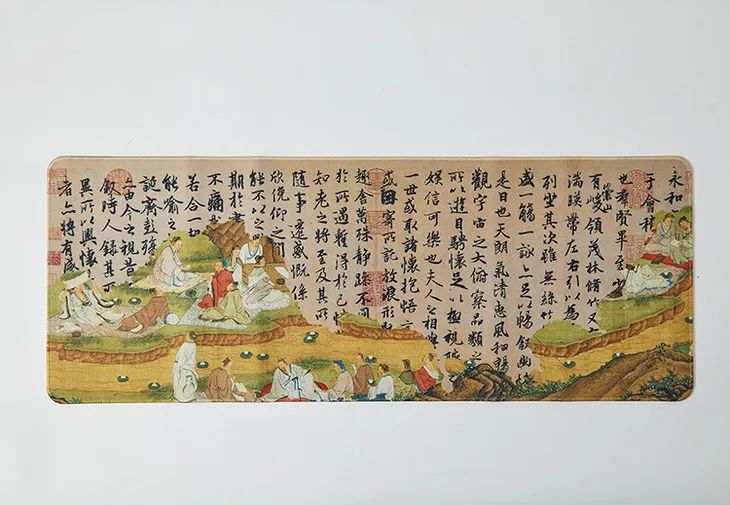 永和
于會稽
也羣賢畢至少
有崇山峻領茂林脩竹又
湍暎帶左右引以為
列坐其次雖無絲竹
盛一觴一詠亦足以暢叙幽
是日也天朗氣清惠風和暢
觀宇宙之大俯察品類之
所以遊目騁懷足以極視
娛信可樂也夫人之相與
一世或取諸懷抱悟言
或因寄所託放浪形
趣舍萬殊靜躁不同
於所遇蹔得於己
知老之將至及其所
隨事遷感慨係
欣俛仰之間
能不以之
期於盡
不痛
若合一
能喻之
誕齊彭殤
由今之視昔
叙時人錄其所
異所以興懷
者亦將有感